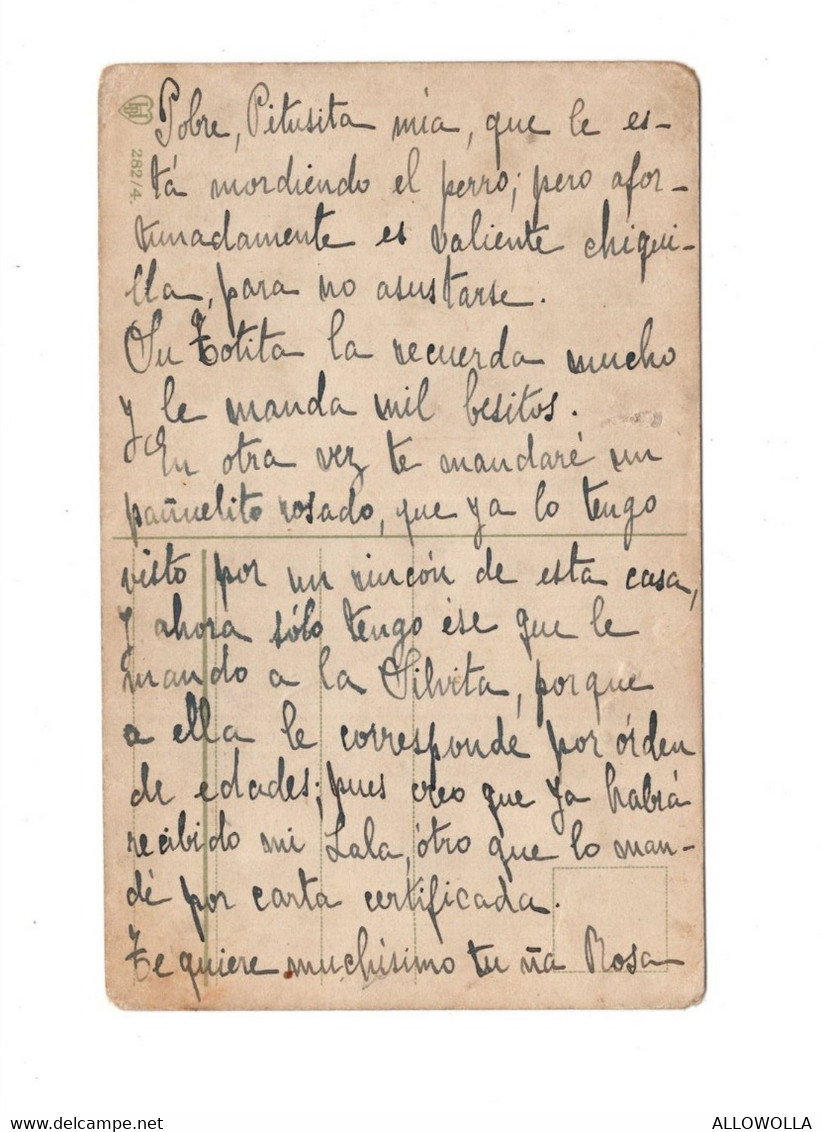 282/4.
Pobre, Pitusita mía, que le es-
tá mordiendo el perro; pero afor-
tunadamente es valiente chiqui-
lla, para no asustarse.
Su Totita la recuerda mucho
y le manda mil besitos.
En otra vez te mandaré un
pañuelito rosado, que ya lo tengo
visto por un rincón de esta casa,
y ahora sólo tengo ése que le
mando a la Silvita, porque
a ella le corresponde por órden
de edades; pues creo que ya habrá
recibido mi Lala, ótro que lo man-
dé por carta certificada.
Te quiere muchísimo tu ña Rosa
www.delcampe.net
ALLOWOLLA